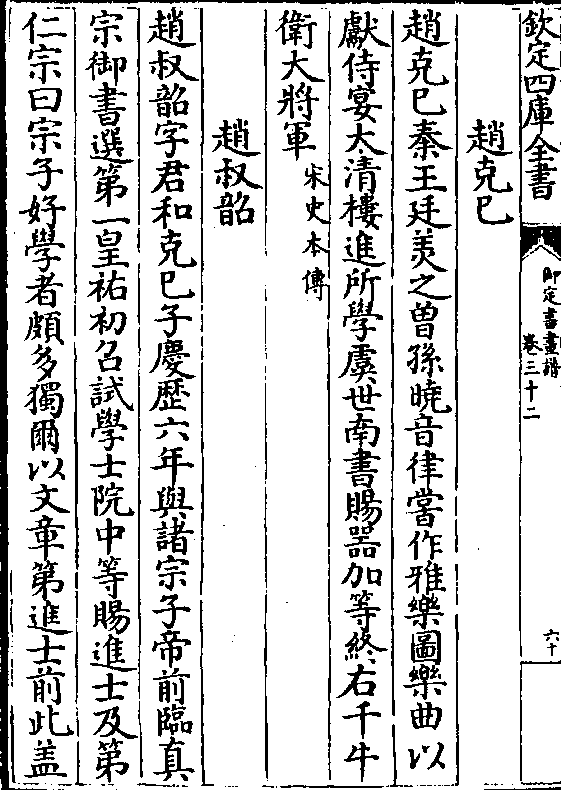 欽定四庫全書
御定書畫譜
卷三十二
六十
趙克巳
趙克巳秦王廷美之曾孫曉音律嘗作雅樂圖樂曲以
獻侍宴大清樓進所學虞世南書賜器加等終右千牛
衛大將軍宋史本傳
趙叔韶
趙叔韶字君和克巳子慶歷六年與諸宗子帝前臨真
宗御書選第一皇祐初召試學士院中等賜進士及第
仁宗曰宗子好學者頗多獨爾以文章第進士前此盖